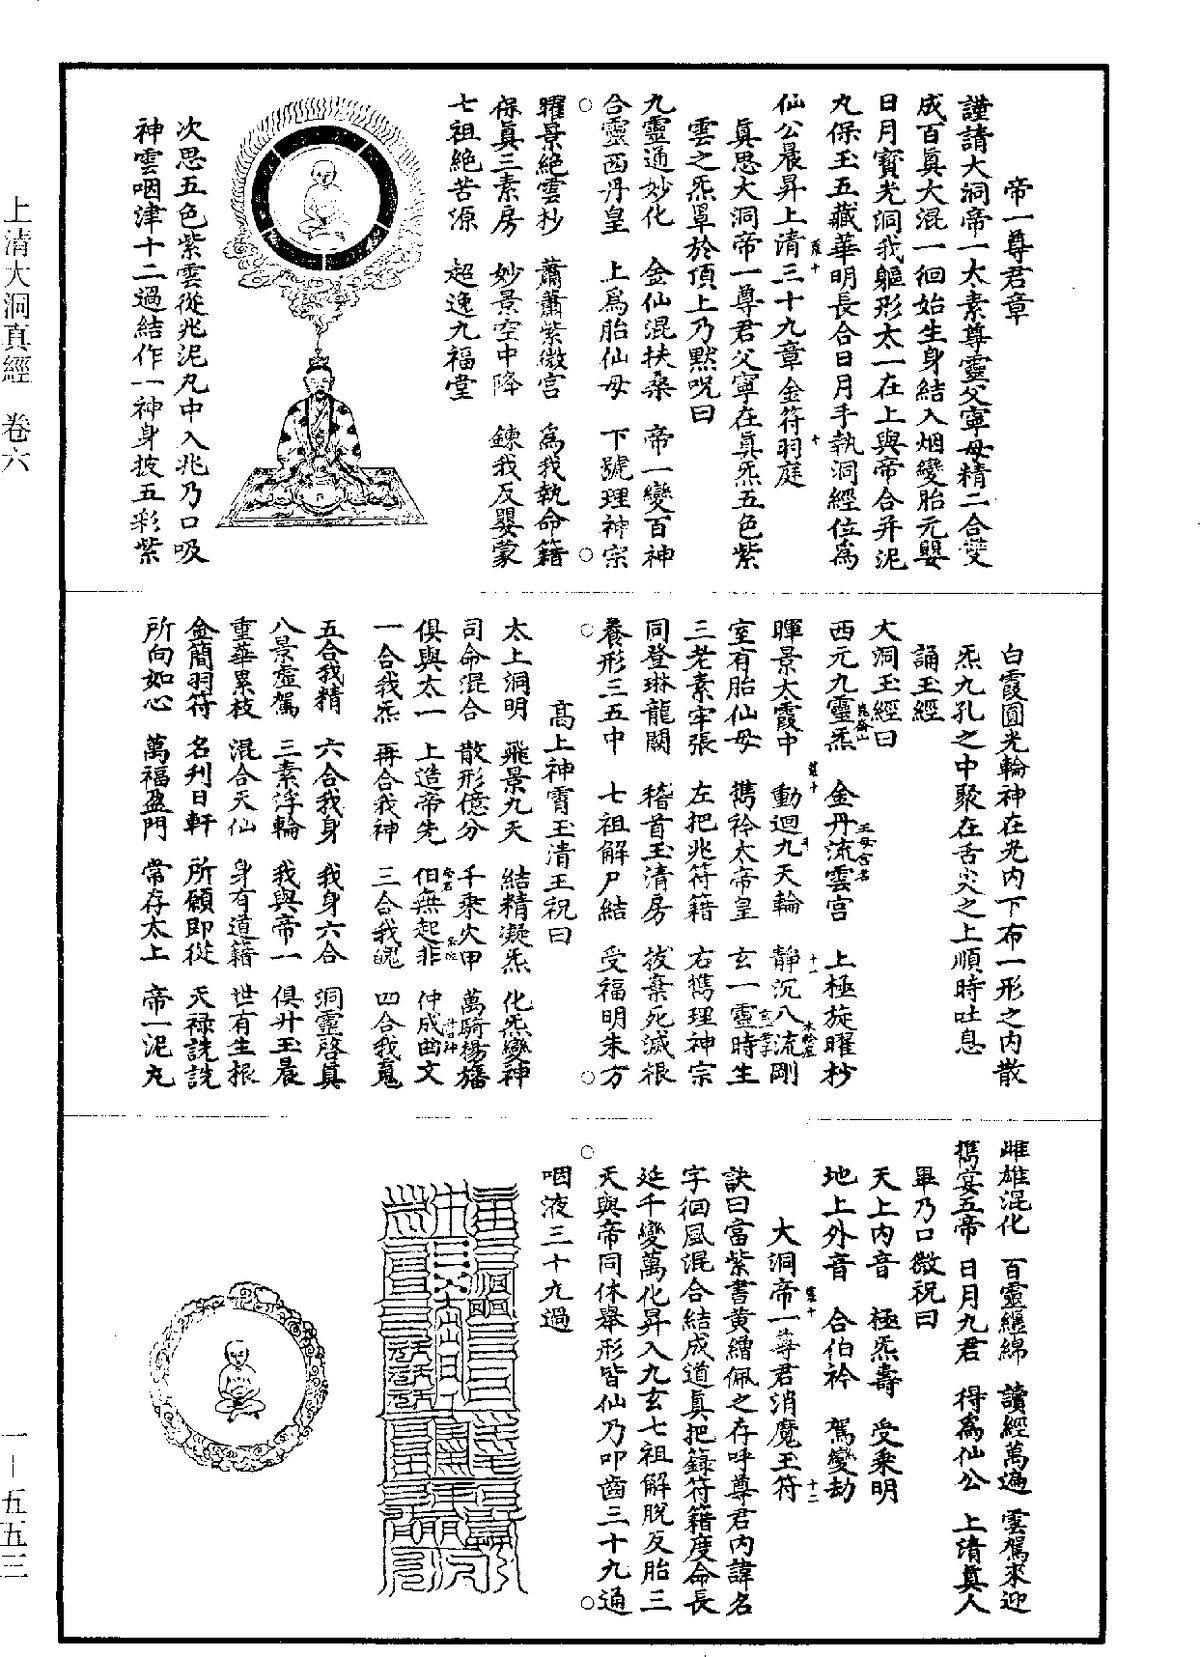 上清大洞真經 卷六
一—五五三
帝一尊君章
謹請大洞帝一太素尊靈父寧母精二合雙
成百眞大混一徊始生身結入烟變胎元嬰
日月寶光洞我軀形太一在上與帝合并泥
丸保玉五藏華明長合日月手執洞經位爲
仙公晨昇上清三十九章金符羽庭
眞思大洞帝一尊君父寧在眞炁五色紫
雲之炁罩於頂上乃默呪曰
九靈通妙化 金仙混扶桑 帝一變百神
合靈西丹皇 上爲胎仙母 下號理神宗
曜景絶雲杪 蕭蕭紫微宫 爲我執命籍
保眞三素房 妙景空中降 鍊我反嬰蒙
七祖絶苦源 超逸九福堂
次思五色紫雲從兆泥丸中入兆乃口吸
神雲咽津十二過結作一神身披五彩紫
白霞圓光輪神在光内下布一形之内散
炁九孔之中聚在舌尖之上順時吐息
誦玉經
大洞玉經曰
西元九靈炁 金丹流雲宫 上極旋曜杪
暉景太霞中 動迴九天輪 静沉八流剛
室有胎仙母 攜衿太帝皇 玄一靈時生
三老素牢張 左把兆符籍 右攜理神宗
同登琳龍闕 稽首玉清房 拔棄死滅根
養形三五中 七祖解尸結 受福明朱方
高上神霄玉清王祝曰
太上洞明 飛景九天 結精凝炁 化炁變神
司命混合 散形億分 千乘火甲 萬騎揚旛
俱與太一 上造帝先 但無起非 仲成曲文
一合我炁 再合我神 三合我魄 四合我䰟
五合我精 六合我身 我身六合 洞靈啓真
八景虛駕 三素浮輪 我與帝一 俱升玉晨
重華累枝 混合天仙 身有道籍 世有生根
金簡羽符 名刋日軒 所願即從 天禄詵詵
所向如心 萬福盈門 常存太上 帝一泥丸
雌雄混化 百靈纏綿 讀經萬遍 雲駕來迎
攜宴五帝 日月九君 得爲仙公 上清真人
畢乃口微祝曰
天上内音 極炁壽 受乘明
地上外音 合伯衿 駕變劫
大洞帝一尊君消魔王符
訣曰當紫書黄繒佩之存呼尊君内諱名
字徊風混合結成道真把籙符籍度命長
延千變萬化昇入九玄七祖解脱反胎三
天與帝同休舉形皆仙乃叩齒三十九通
咽液三十九過